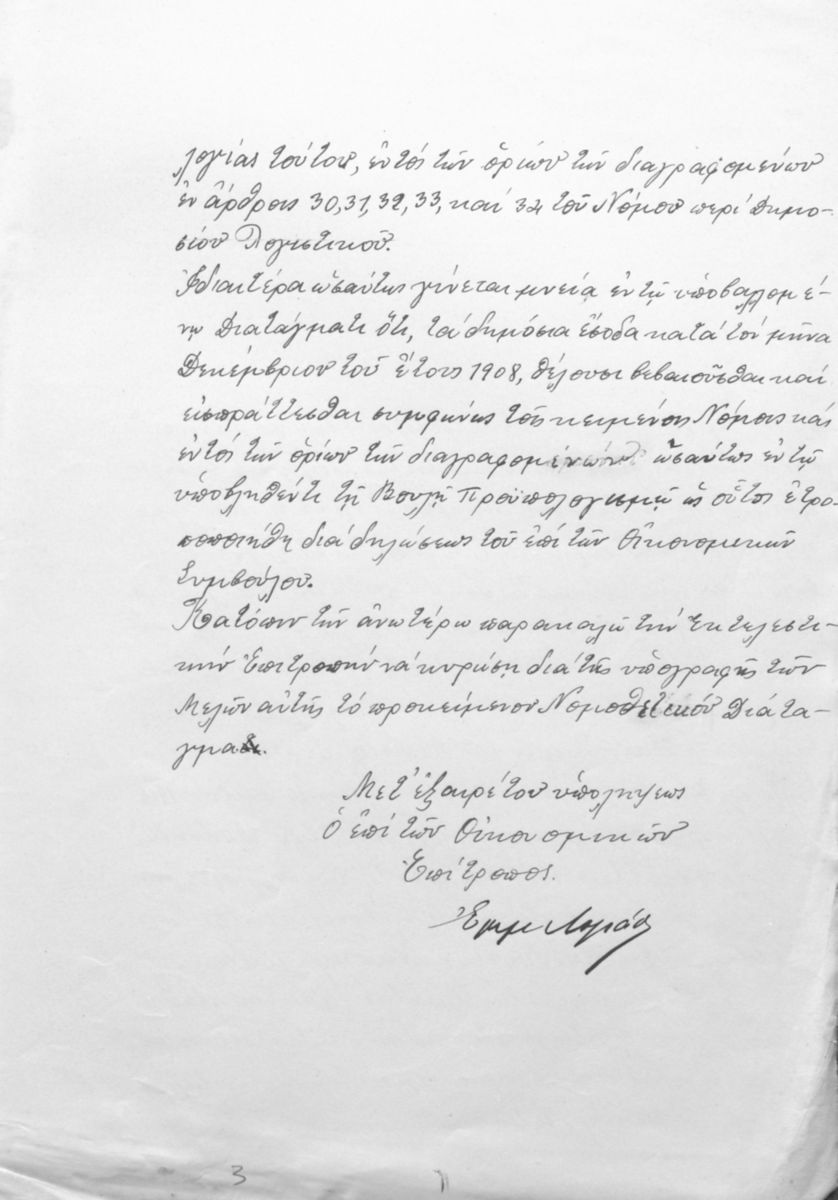 λογίας τούτου, ἐντός τῶν ὁρίων τῶν διαγραφομένων
ἐν ἄρθροις 30, 31, 32, 33, καί 34 τοῦ Νόμου περί Δημο-
σίου Λογιστικοῦ.
Ἰδιαιτέρα ὡσαύτως γίνεται μνεία ἐν τῷ ὑποβαλλομέ-
νῳ Διατάγματι ὅτι, τά δημόσια ἔσοδα κατά τόν μῆνα
Δεκέμβριον τοῦ ἔτους 1908, θέλουσι βεβαιοῦσθαι καί
εἰσπράττεσθαι συμφώνως τοῖς κειμένοις Νόμοις καί
ἐντός τῶν ὁρίων τῶν διαγραφομένων ὡσαύτως ἐν τῷ
ὑποβληθέντι τῇ Βουλῇ Προϋπολογισμῷ ὡς οὗτος ἐτρο-
ποποιήθη διά δηλώσεως τοῦ ἐπί τῶν Οἰκονομικῶν
Συμβούλου.
Κατόπιν τῶν ἀνωτέρω παρακαλῶ τήν Ἐκτελεστι-
κήν Ἐπιτροπήν νά κυρώσῃ διά τῆς ὑπογραφῆς τῶν
Μελῶν αὐτῆς τό προκείμενον Νομοθετικόν Διάτα-
γμα.
Μετ' ἐξαιρέτου ὑπολήψεως
Ὁ ἐπί τῶν Οἰκονομικῶν
Ἐπίτροπος.
3